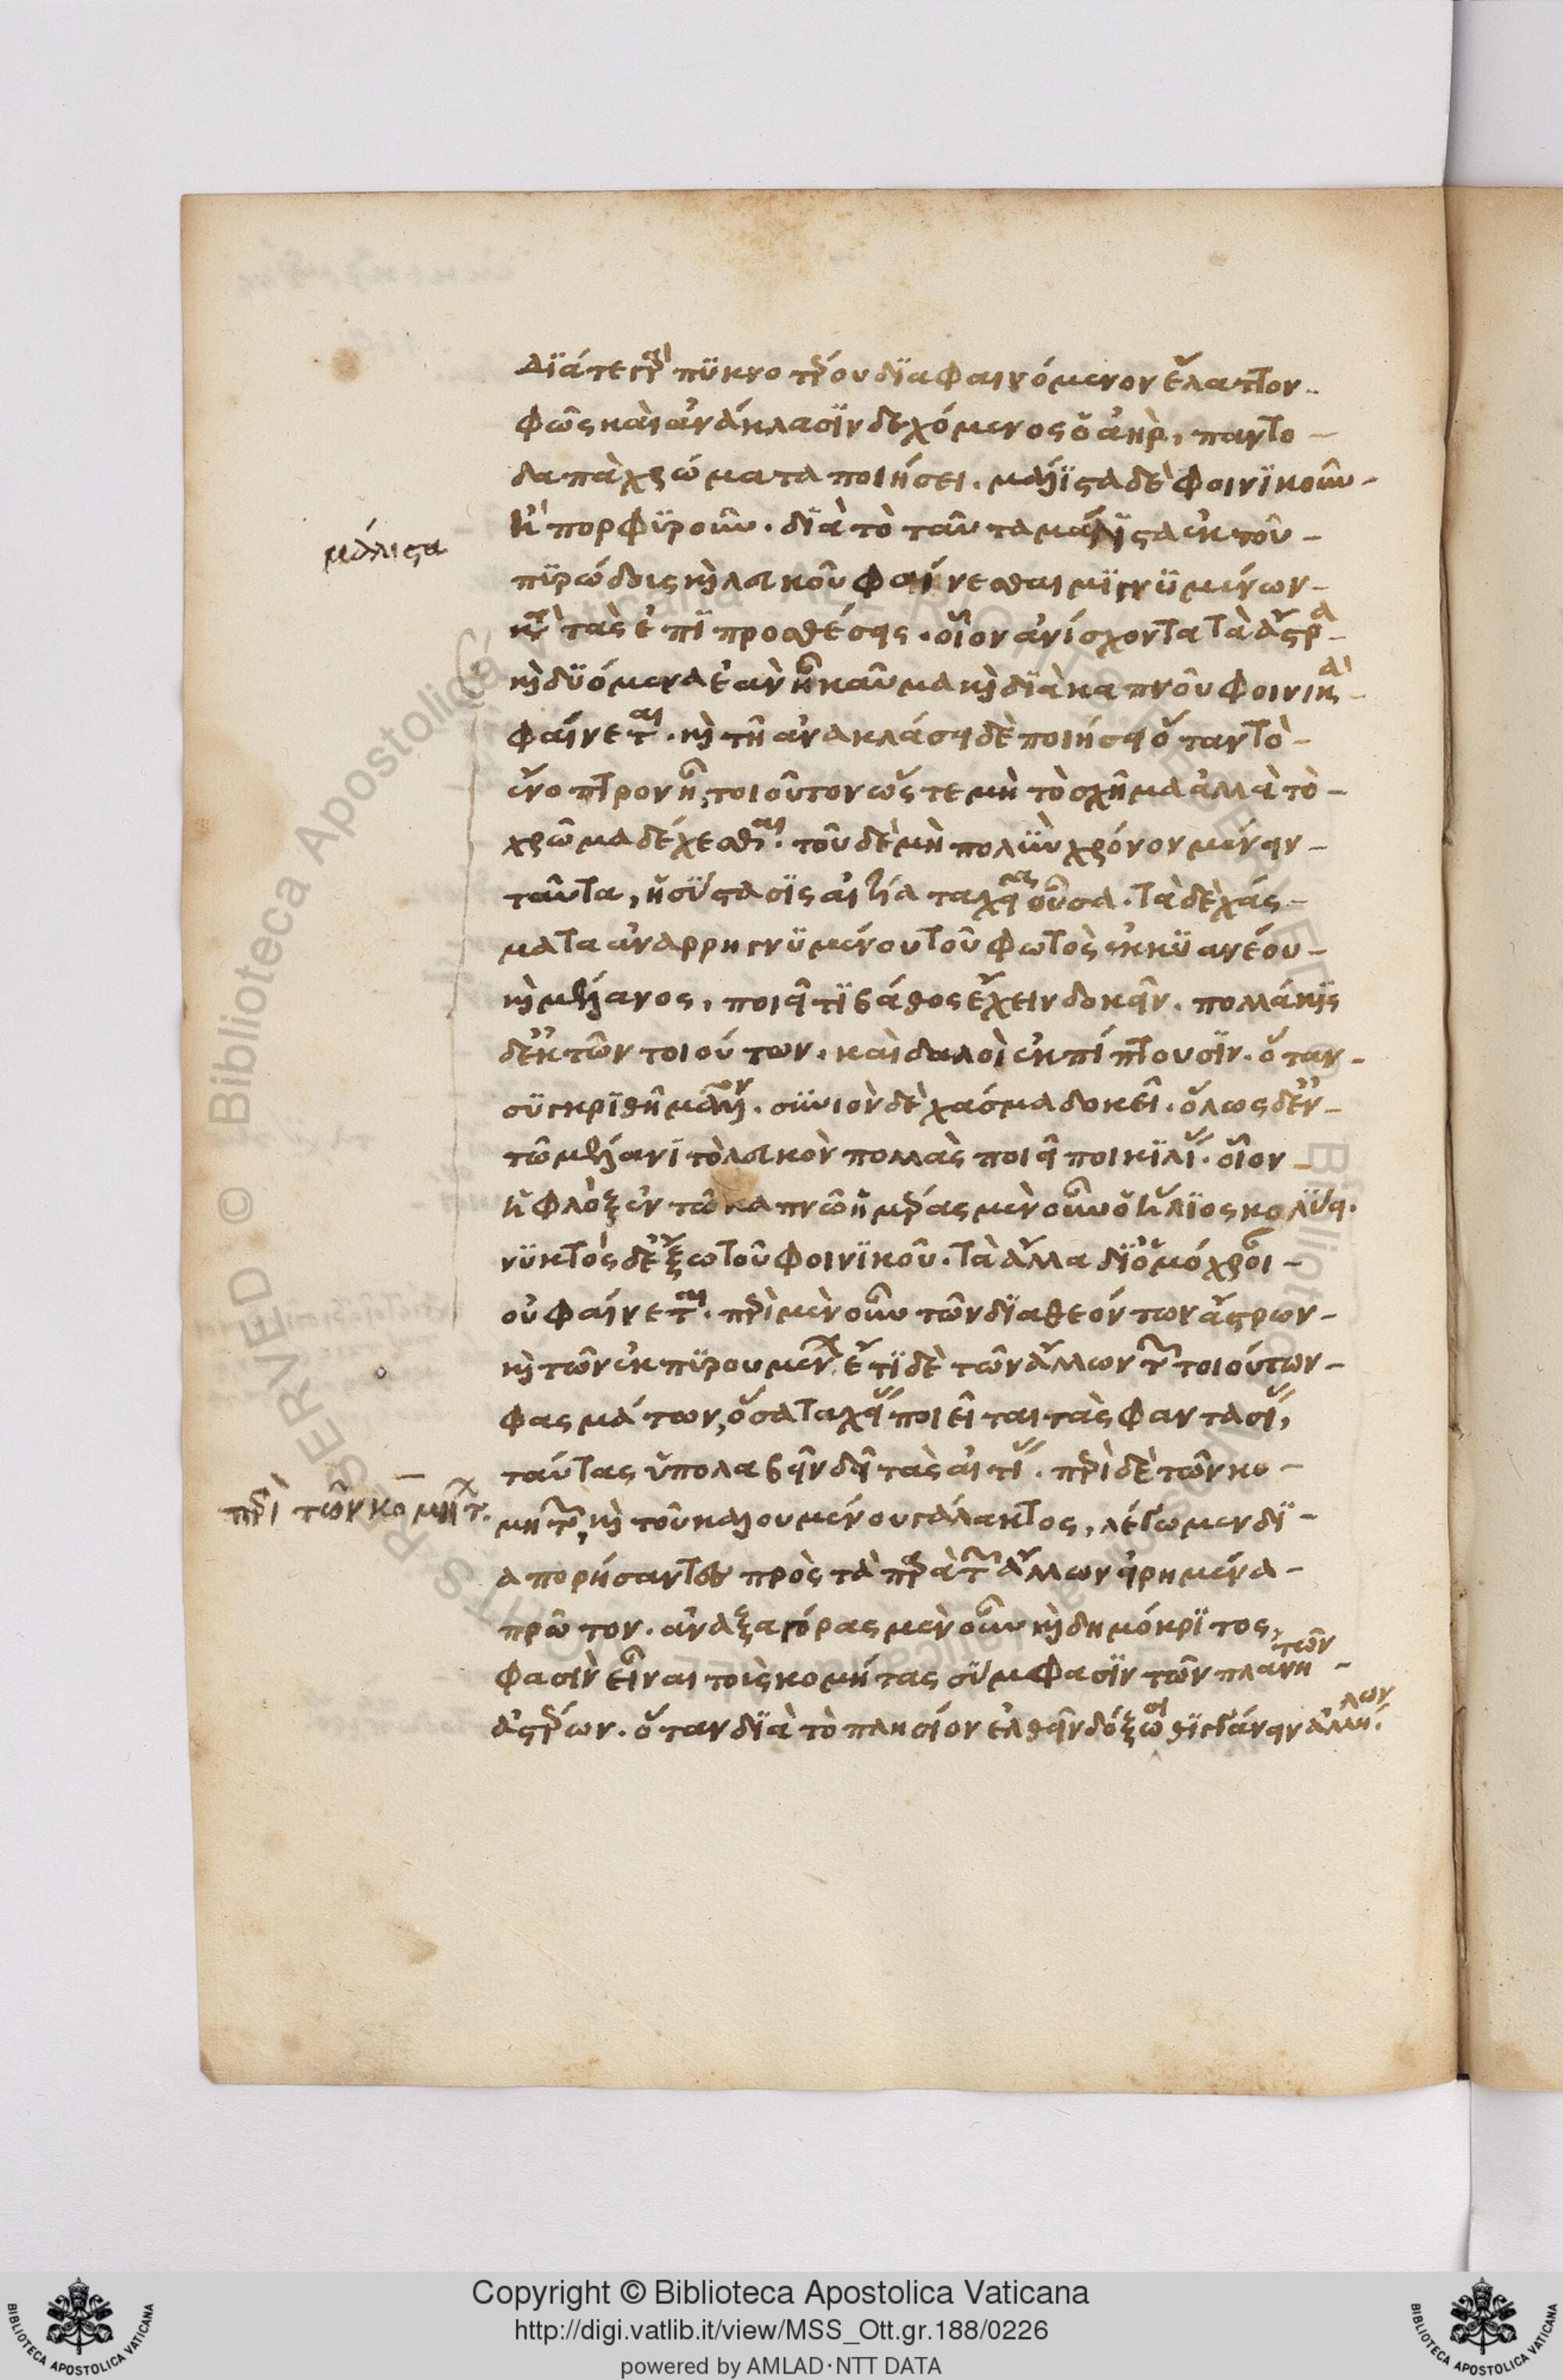 διά τε γὰρ πυκνοτέρου διαφαινόμενον ἔλαττον
φῶς καὶ ἀνάκλασιν δεχόμενος ὁ ἀὴρ, παντο
δαπὰ χρώματα ποιήσει. μάλιστα δὲ φοινικοῦν
ἢ πορφυροῦν. διὰ τὸ ταῦτα μάλιστα ἐκ τοῦ
μάλιστα
πυρώδους καὶ λευκοῦ φαίνεσθαι μιγνυμένων
κατὰ τὰς ἐπιπροσθέσεις. οἷον ἀνίσχοντα τὰ ἄστρα
καὶ δυόμενα ἐὰν ᾖ καῦμα καὶ διὰ καπνοῦ φοινικᾶ
φαίνεται. καὶ τῇ ἀνακλάσει δὲ ποιήσει ὅταν τὸ
ἔνοπτρον ᾖ τοιοῦτον ὥστε μὴ τὸ σχῆμα ἀλλὰ τὸ
χρῶμα δέχεσθαι. τοῦ δὲ μὴ πολὺν χρόνον μένειν
ταῦτα, ἡ σύστασις αἰτία ταχεῖα οὖσα. τὰ δὲ χάσ
ματα ἀναρρηγνυμένου τοῦ φωτὸς ἐκ κυανέου
καὶ μέλανος, ποιεῖ τι βάθος ἔχειν δοκεῖν. πολλάκις
δ' ἐκ τῶν τοιούτων. καὶ δαλοὶ ἐκπίπτουσιν. ὅταν
συγκριθῇ μᾶλλον. συνιὸν δὲ χάσμα δοκεῖ. ὅλως δ' ἐν
τῷ μέλανι τὸ λευκὸν πολλὰς ποιεῖ ποικιλίας. οἷον
ἡ φλὸξ ἐν τῷ καπνῷ ἡμέρας μὲν οὖν ὁ ἥλιος κωλύει.
νυκτὸς δ' ἔξω τοῦ φοινικοῦ. τὰ ἄλλα δι' ὁμόχροι
οὐ φαίνεται. περὶ μὲν οὖν τῶν διαθεόντων ἄστρων
καὶ τῶν ἐκπυρουμένων. ἔτι δὲ τῶν ἄλλων τῶν τοιούτων
φασμάτων, ὅσα ταχείας ποιεῖται τὰς φαντασίας,
ταύτας ὑπολαβεῖν δεῖ τὰς αἰτίας. περὶ δὲ τῶν κο
περὶ τῶν κομητῶν.
μητῶν, καὶ τοῦ καλουμένου γάλακτος, λέγωμεν δι
απορήσαντες πρὸς τὰ παρὰ τῶν ἄλλων εἰρημένα
πρῶτον. ἀναξαγόρας μὲν οὖν καὶ δημόκριτος,
φασὶν εἶναι τοὺς κομήτας σύμφασιν τῶν πλανήτων
ἀστέρων. ὅταν διὰ τὸ πλησίον ἐλθεῖν δόξωσι θιγγάνειν ἀλλήλων.
Copyright © Biblioteca Apostolica Vaticana
http://digi.vatlib.it/view/MSS_Ott.gr.188/0226
powered by AMLAD·NTT DATA
BIBLIOTECA APOSTOLICA VATICANA
BIBLIOTECA APOSTOLICA VATICANA